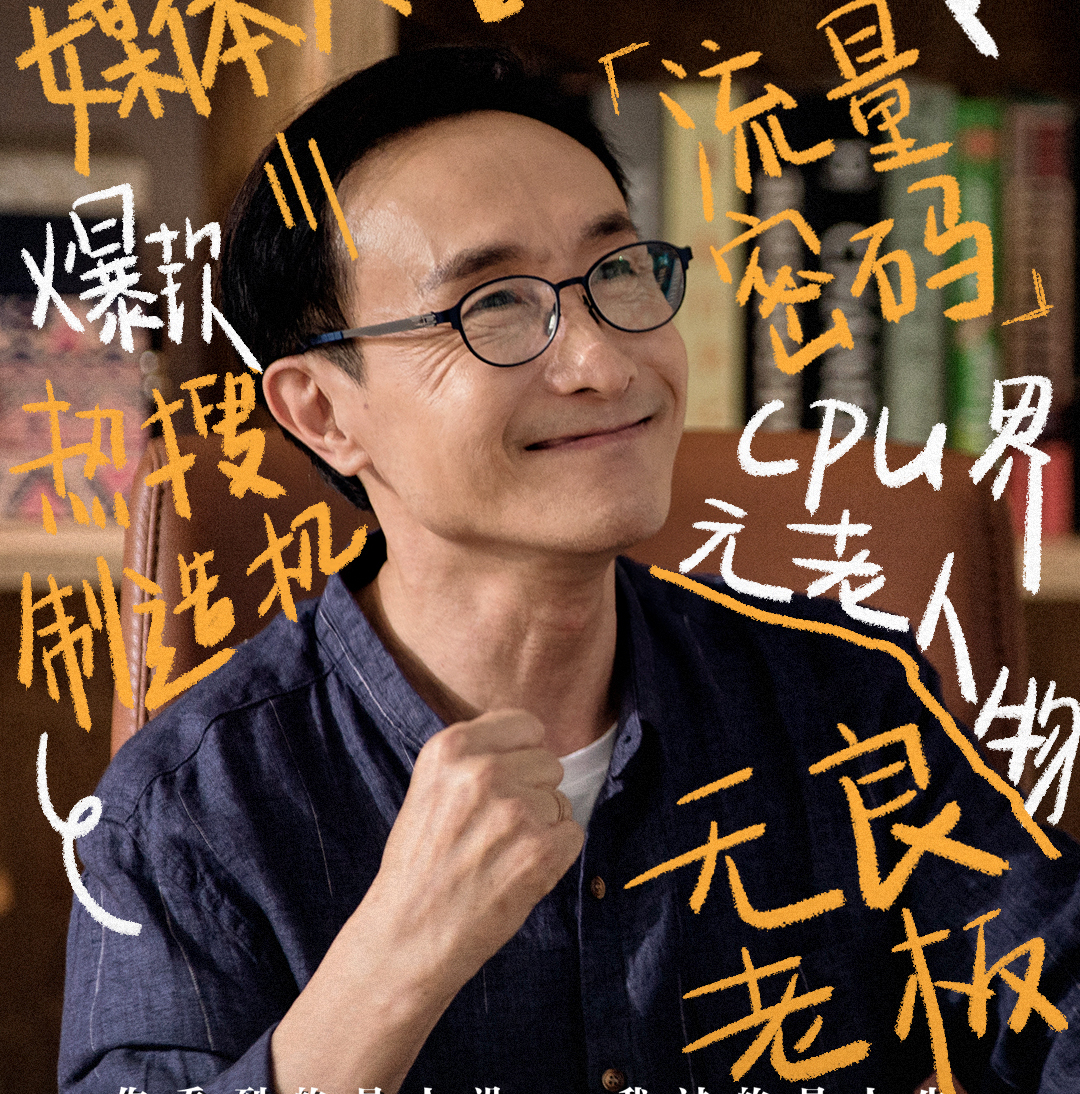 媒体
「流量
密码」
爆款
热搜
制造机
CPU界
元老人物
无良
老板